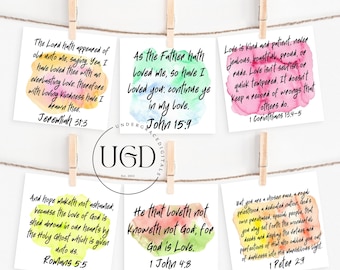 The Lord hath appeared of
old unto me, saying, Yea, I
have loved thee with an
everlasting love: therefore
with loving kindness have I
drawn thee.
Jeremiah 31:3
As the Father hath
loved me, so have I
loved you: continue ye
in my love.
John 15:9
Love is kind and patient, never
jealous, boastful, proud, or
rude. Love isn't selfish or
quick tempered. It doesn't
keep a record of wrongs that
others do.
1 Corinthians 13:4-5
UNDERGRACEDIGITAL
UGD
And hope maketh not ashamed;
because the love of God is
shed abroad in our hearts by
the Holy Ghost which is given
unto us.
Romans 5:5
He that loveth not
knoweth not God; for
God is Love.
1 John 4:8
But you are a chosen race, a royal
priesthood, a
own
you may
of
of darkness into his marvelous light.
1 Peter 2:9